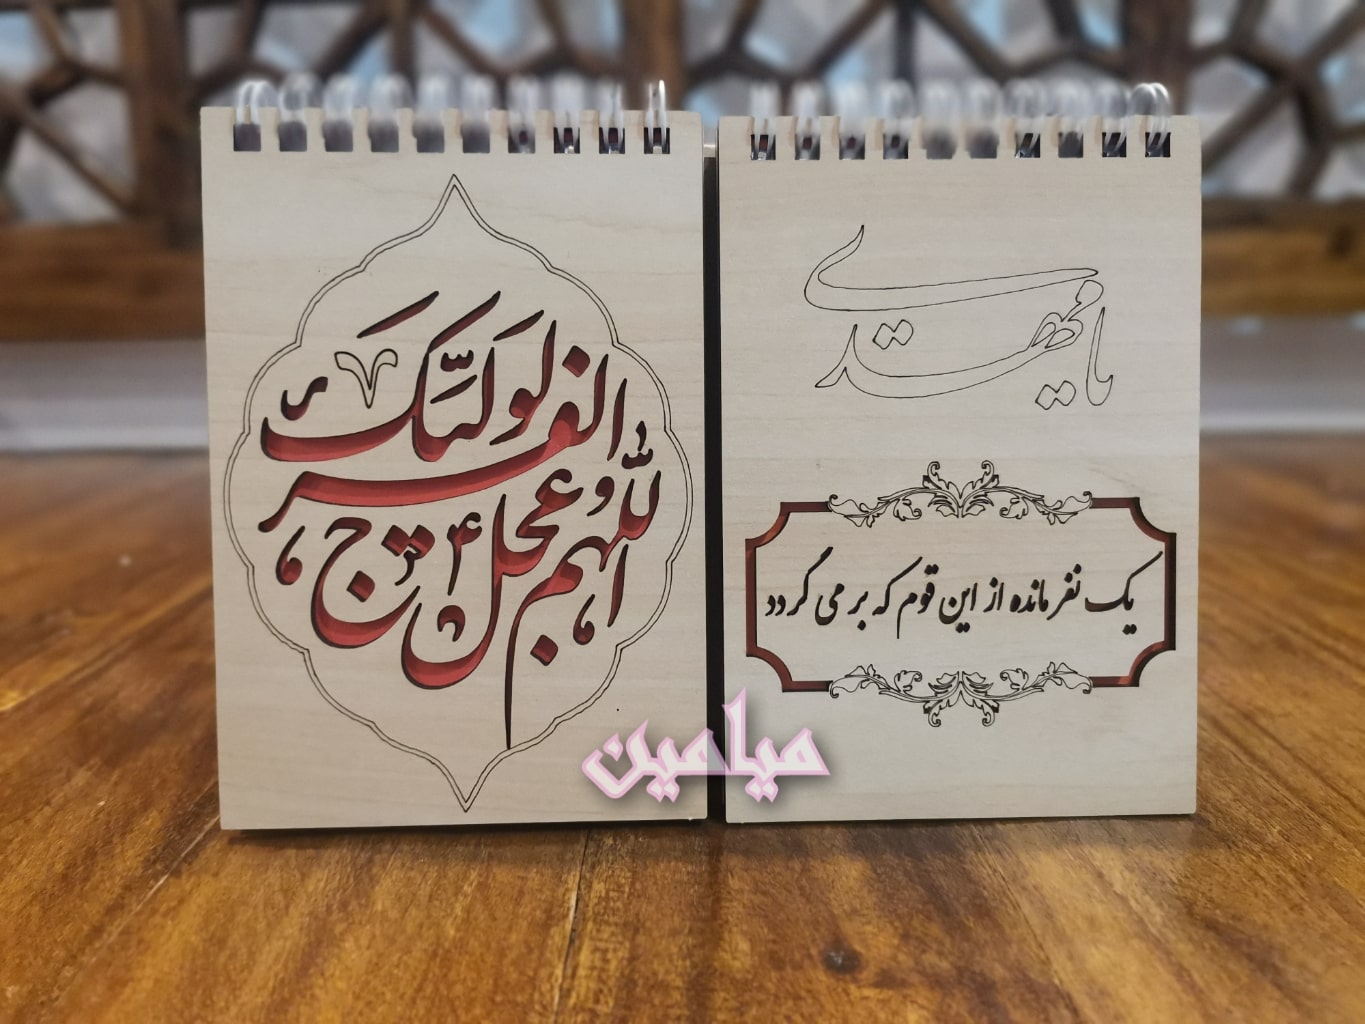 اللهم عجل لولیک الفرج
یا مهدی
یک نفر مانده از این قوم که بر می گردد
میامین